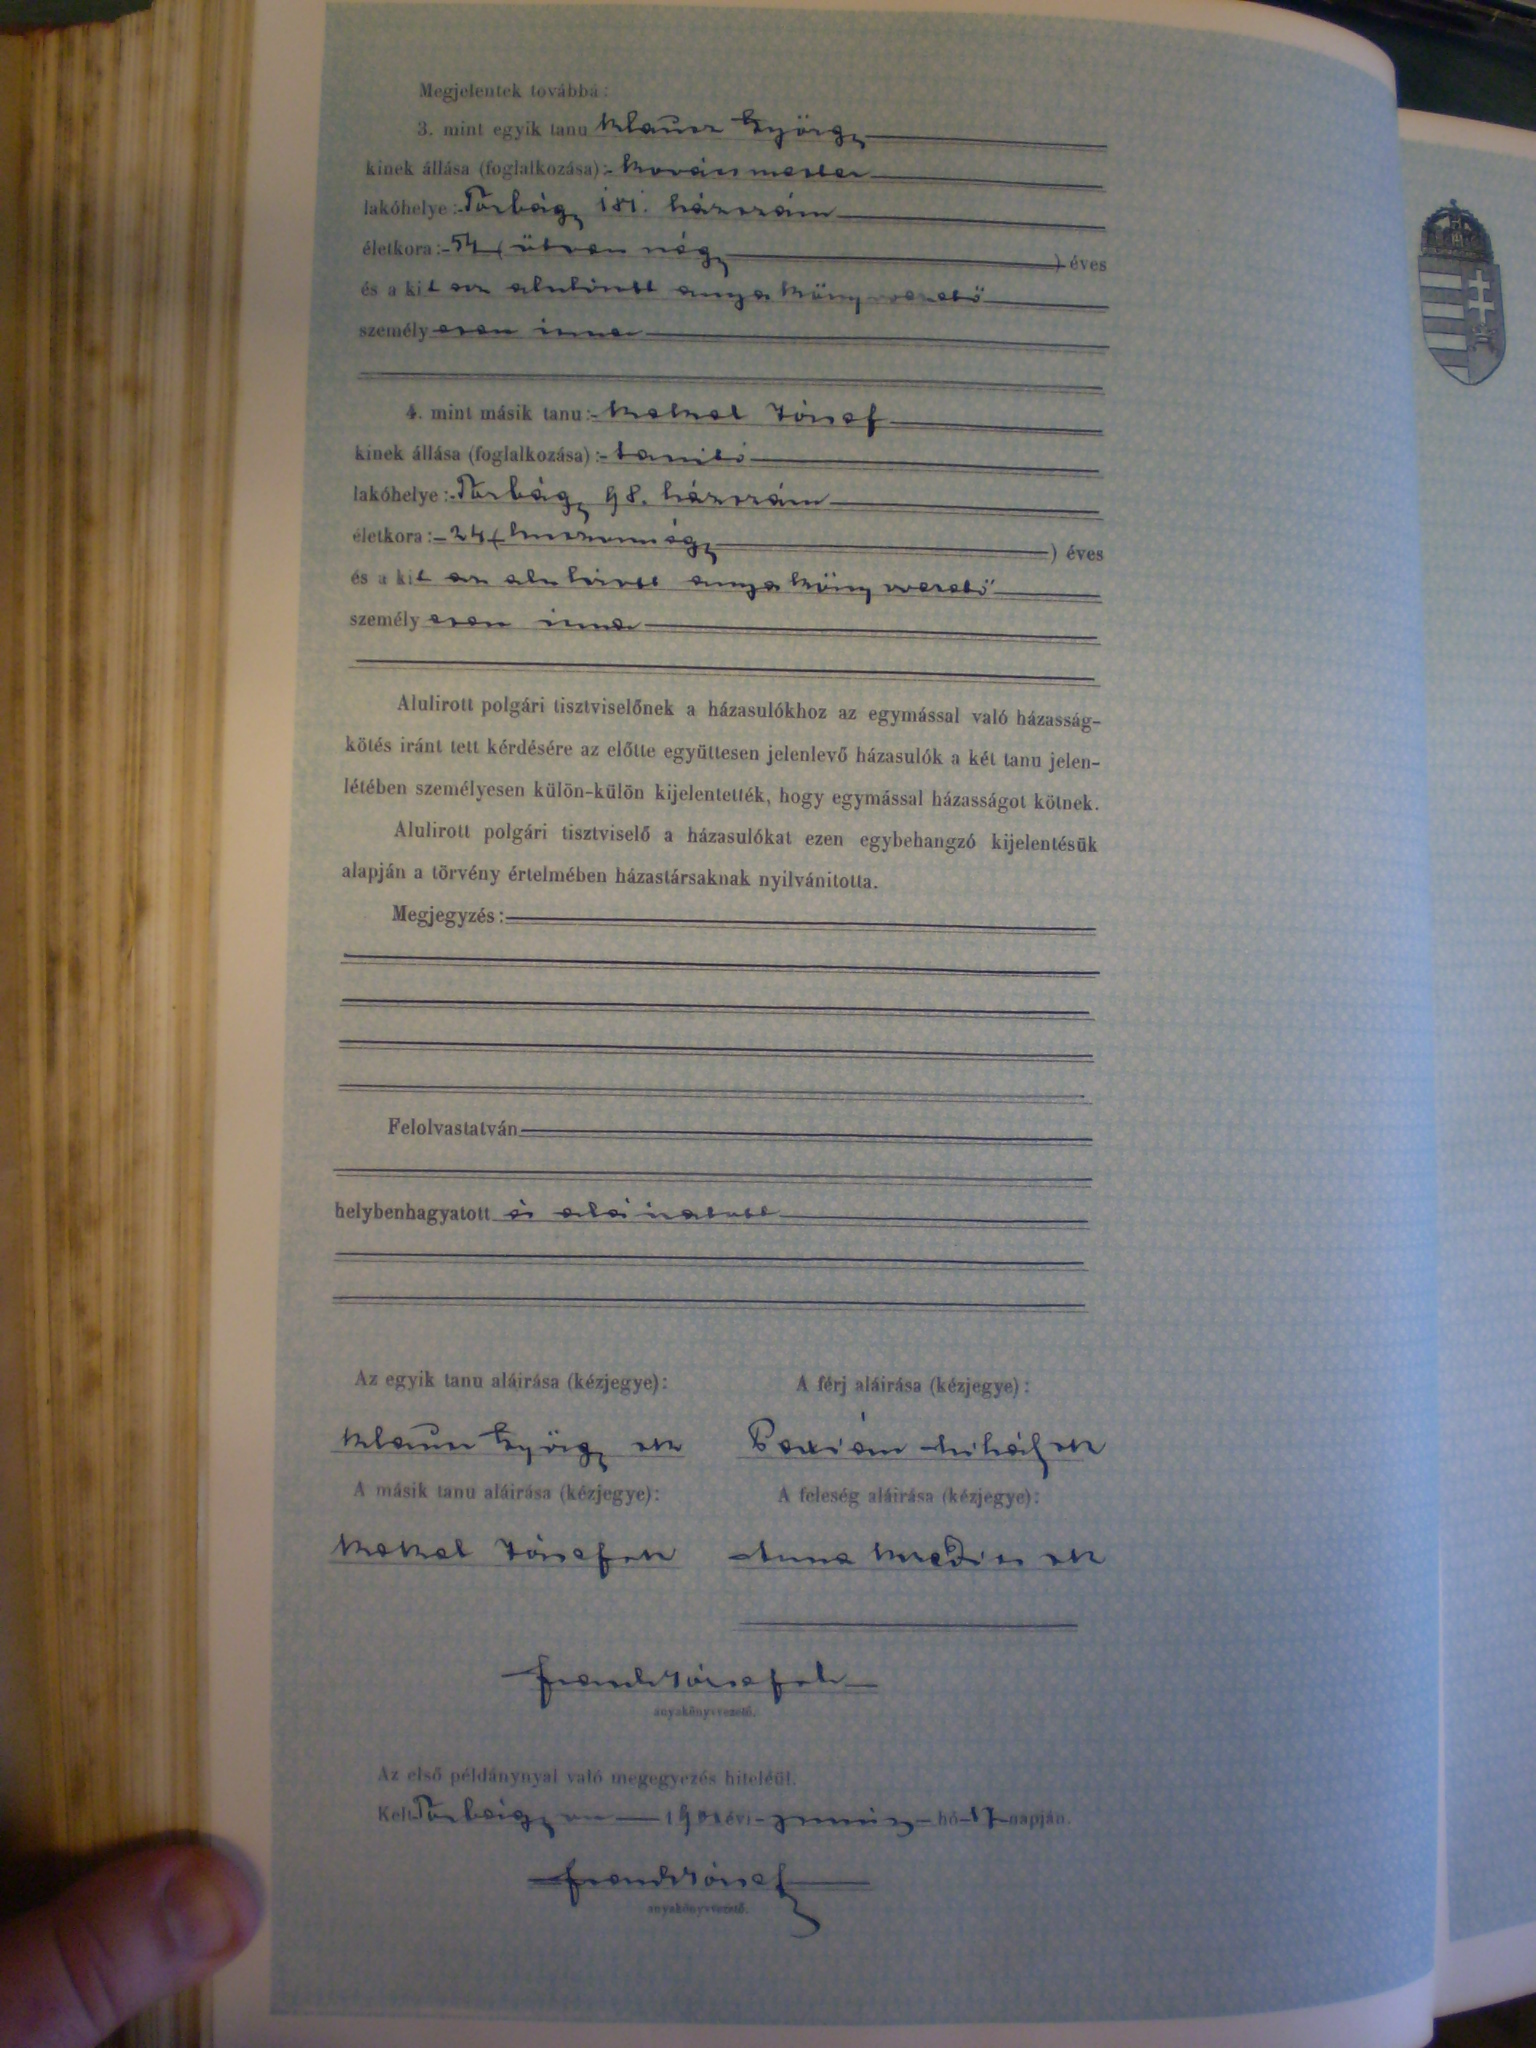 Megjelentek továbbá:
3. mint egyik tanu György
kinek állása (foglalkozása): kovácsmester
lakóhelye: Torbágy 181. házszám
életkora: 54 (ötvennégy) éves
és a kit az alulirott anyakönyvvezető
személyesen ismer
4. mint másik tanu: József
kinek állása (foglalkozása): tanító
lakóhelye: Torbágy 98. házszám
életkora: 24 (huszonnégy) éves
és a kit az alulirott anyakönyvvezető
személyesen ismer
Alulirott polgári tisztviselőnek a házasulókhoz az egymással való házasság-
kötés iránt tett kérdésére az előtte együttesen jelenlevő házasulók a két tanu jelen-
létében személyesen külön-külön kijelentették, hogy egymással házasságot kötnek.
Alulirott polgári tisztviselő a házasulókat ezen egybehangzó kijelentésük
alapján a törvény értelmében házastársaknak nyilvánitotta.
Megjegyzés:
Felolvastatván
helybenhagyatott és aláiratott
Az egyik tanu aláirása (kézjegye): A férj aláirása (kézjegye):
György sk Mihály sk
A másik tanu aláirása (kézjegye): A feleség aláirása (kézjegye):
József sk Anna sk
József sk
anyakönyvvezető.
Az első példánynyal való megegyezés hiteléül.
Kelt Torbágyon évi hó 17 napján.
József
anyakönyvvezető.